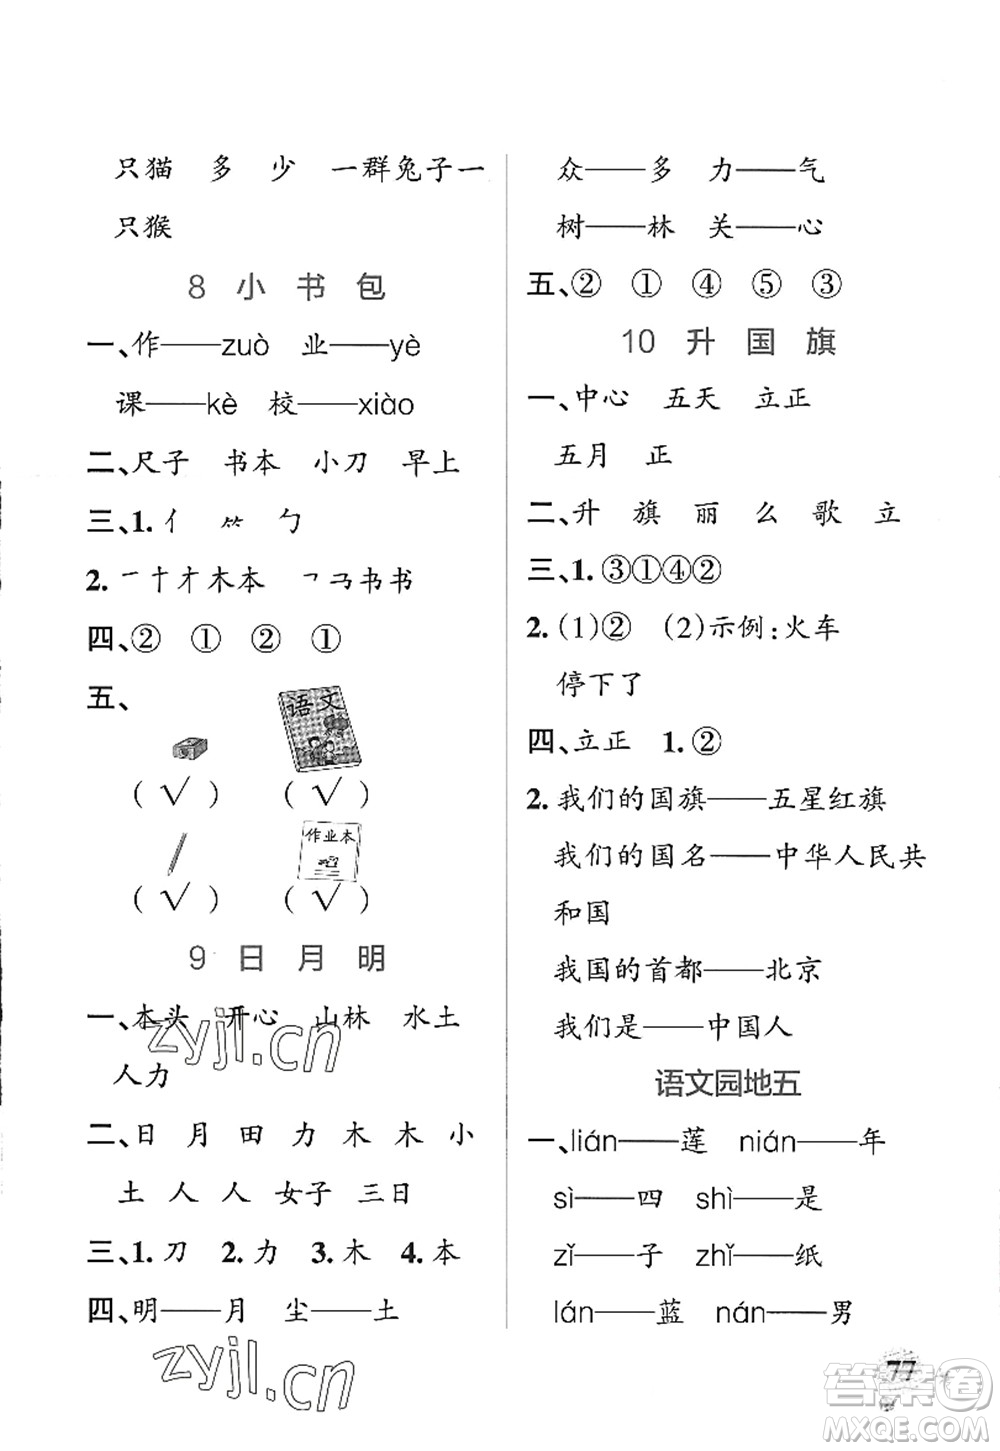 只猫 多 少 一群兔子一
只猴
8 小 书 包
一、作——zuò 业——yè
课——kè 校——xiào
二、尺子 书本 小刀 早上
三、1. 亻 ⺮ 勹
2. 一 十 才 木 本 ㇕ 马 书 书
四、② ① ② ①
五、
语文
(√) (√)
作业本
(√) (√)
9 日 月 明
一、本头 开心 山林 水土
人力
二、日 月 田 力 木 木 小
土 人 人 女子 三日
三、1. 刀 2. 力 3. 木 4. 本
四、明——月 尘——土
众——多 力——气
树——林 关——心
五、② ① ④ ⑤ ③
10 升 国 旗
一、中心 五天 立正
五月 正
二、升 旗 丽 么 歌 立
三、1. ③①④②
2. (1)② (2)示例:火车
停下了
四、立正 1. ②
2. 我们的国旗——五星红旗
我们的国名——中华人民共
和国
我国的首都——北京
我们是——中国人
语文园地五
一、lián——莲 nián——年
sì——四 shì——是
zǐ——子 zhǐ——纸
lán——蓝 nán——男
77
zyjl.cn
zyjl.cn
答案圈
MXQE.COM